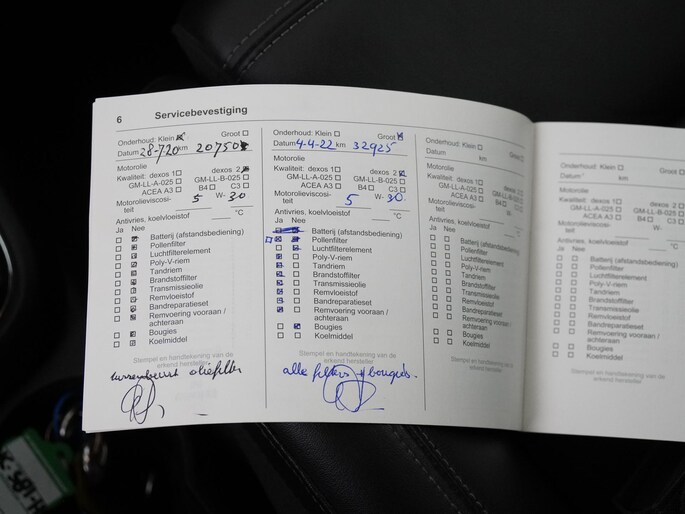 6 Servicebevestiging
Onderhoud: Klein Groot
Datum 28-720 km 20750
Motorolie
Kwaliteit: dexos 1 dexos 2
GM-LL-A-025 GM-LL-B-025
ACEA A3 B4 C3
Motorolieviscosi- 5 W- 30
teit
Antivries, koelvloeistof °C
Ja Nee
Batterij (afstandsbediening)
Pollenfilter
Luchtfilterelement
Poly-V-riem
Tandriem
Brandstoffilter
Transmissieolie
Remvloeistof
Bandreparatieset
Remvoering vooraan /
achteraan
Bougies
Koelmiddel
Stempel en handtekening van de
erkend hersteller
tussenbeurt oliefilter
Onderhoud: Klein Groot
Datum 4-4-22 km 32925
Motorolie
Kwaliteit: dexos 1 dexos 2
GM-LL-A-025 GM-LL-B-025
ACEA A3 B4 C3
Motorolieviscosi- 5 W- 30
teit
Antivries, koelvloeistof °C
Ja Nee
Batterij (afstandsbediening)
Pollenfilter
Luchtfilterelement
Poly-V-riem
Tandriem
Brandstoffilter
Transmissieolie
Remvloeistof
Bandreparatieset
Remvoering vooraan /
achteraan
Bougies
Koelmiddel
Stempel en handtekening van de
erkend hersteller
alle filters + bougies.
Onderhoud: Klein Groot
Datum km
Motorolie
Kwaliteit: dexos 1 dexos 2
GM-LL-A-025 GM-LL-B-025
ACEA A3 B4 C3
Motorolieviscosi- W-
teit
Antivries, koelvloeistof °C
Ja Nee
Batterij (afstandsbediening)
Pollenfilter
Luchtfilterelement
Poly-V-riem
Tandriem
Brandstoffilter
Transmissieolie
Remvloeistof
Bandreparatieset
Remvoering vooraan /
achteraan
Bougies
Koelmiddel
Stempel en handtekening van de
erkend hersteller
Onderhoud: Klein Groot
Datum km
Motorolie
Kwaliteit: dexos 1 dexos 2
GM-LL-A-025 GM-LL-B-025
ACEA A3 B4 C3
Motorolieviscosi- W-
teit
Antivries, koelvloeistof °C
Ja Nee
Batterij (afstandsbediening)
Pollenfilter
Luchtfilterelement
Poly-V-riem
Tandriem
Brandstoffilter
Transmissieolie
Remvloeistof
Bandreparatieset
Remvoering vooraan /
achteraan
Bougies
Koelmiddel
Stempel en handtekening van de
erkend hersteller